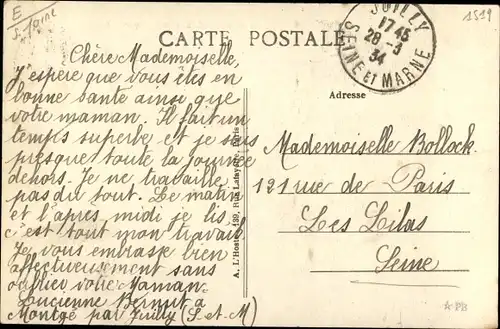 E
S. Marne
1519
JUILLY
17 45
28 - 3
34
SEINE ET MARNE
CARTE POSTALE
Adresse
Chère Mademoiselle,
J'espère que vous êtes en
bonne santé ainsi que
votre maman. Il fait un
temps superbe et je suis
presque toute la journée
dehors. Je ne travaille
pas du tout. Le matin
et l'après midi je lis
c'est tout mon travail
Je vous embrasse bien
affectueusement sans
oublier votre Maman.
Lucienne Bernut à
Montgé par Juilly (S-et-M)
A. L'Hoste, 139, Rue Lafayette, Paris
Mademoiselle Bollock
121 rue de Paris
Les Lilas
Seine
PB